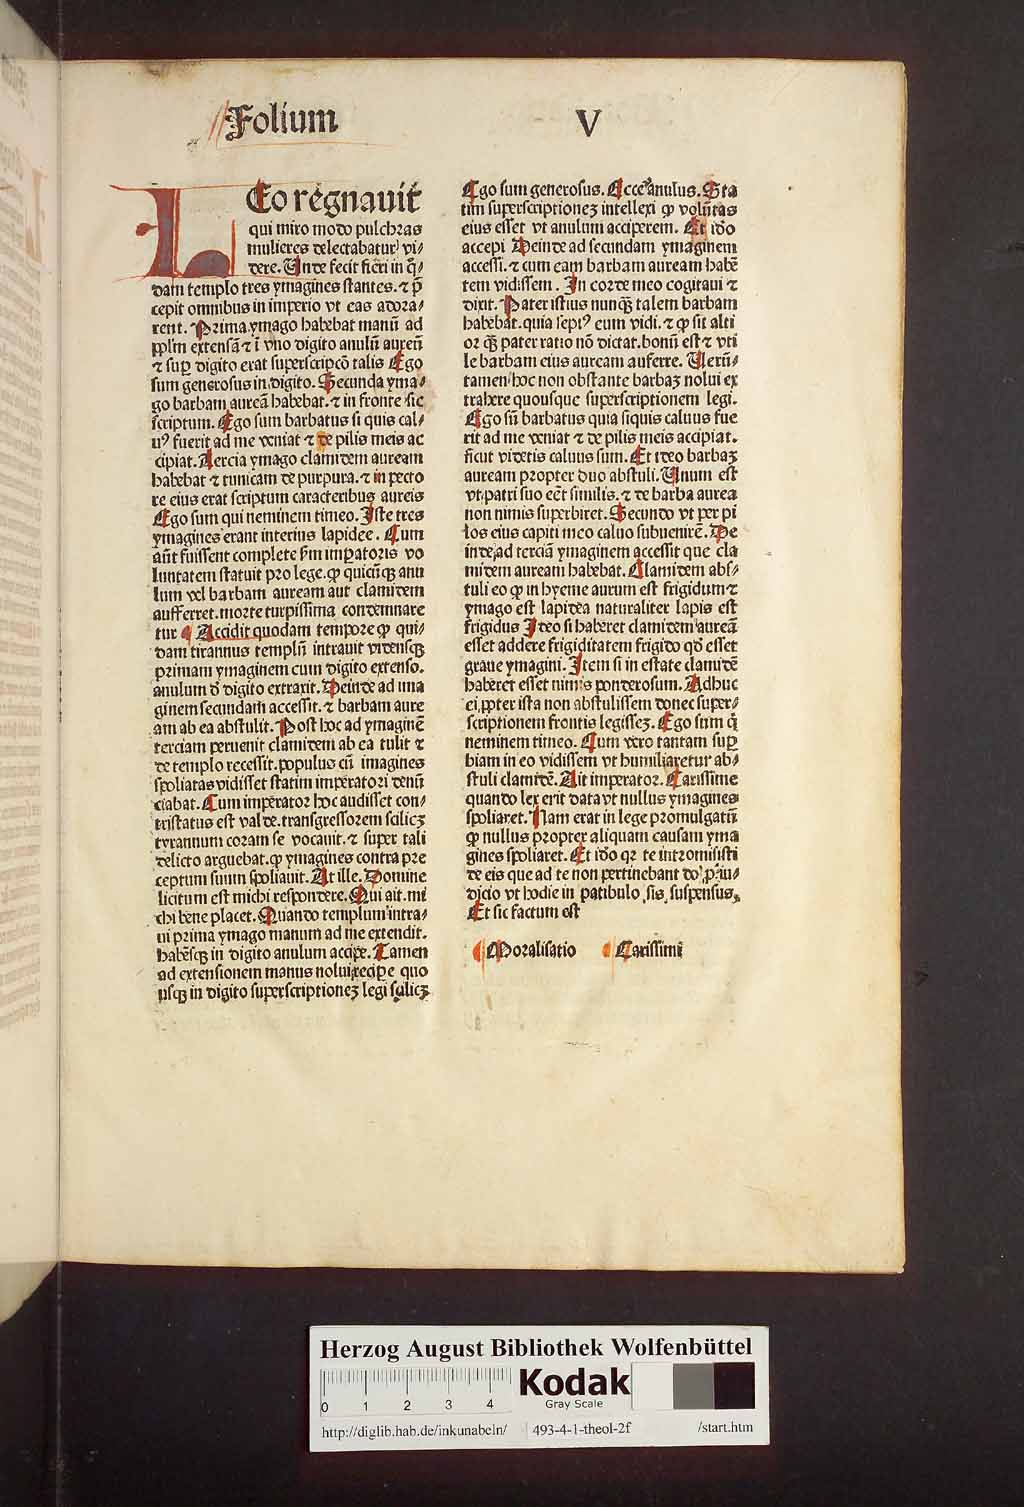 Folium V
LEo regnauit
qui miro modo pulchras
mulieres delectabatur vi-
dere. Unde fecit fieri in q̄-
dam templo tres ymagines stantes. ⁊ p̄
cepit omnibus in imperio vt eas adora-
rent. Prima ymago habebat manū ad
pplm̄ extensā ⁊ ī vno digito anulū aureū
⁊ sup̄ digito erat superscripcō talis Ego
sum generosus in digito. Secunda yma-
go barbam aureā habebat. ⁊ in fronte sic
scriptum. Ego sum barbatus si quis cal-
uꝰ fuerit ad me veniat ⁊ de pilis meis ac
cipiat. Tercia ymago clamidem auream
habebat ⁊ tunicam de purpura. ⁊ in pecto
re eius erat scriptum caracteribus aureis
Ego sum qui neminem timeo. Iste tres
ymagines erant interius lapidee. Cum
aūt fuissent complete ẜm imꝑatoris vo
luntatem statuit pro lege. ꝙ quicūqꝫ anu
lum vel barbam auream aut clamidem
aufferret. morte turpissima condemnare
tur ¶ Accidit quodam tempore ꝙ qui-
dam tirannus templū intrauit vidensqꝫ
primam ymaginem cum digito extenso.
anulum d̄ digito extraxit. Deinde ad ima
ginem secundam accessit. ⁊ barbam aure
am ab ea abstulit. Post hoc ad ymaginē
terciam peruenit clamidem ab ea tulit ⁊
de templo recessit. populus cū imagines
spoliatas vidisset statim imperatori denū
ciabat. Cum imperator hoc audisset con-
tristatus est valde. transgressorem scilicꝫ
tyrannum coram se vocauit. ⁊ super tali
delicto arguebat. ꝙ ymagines contra pre
ceptum suum spoliauit. At ille. Domine
licitum est michi respondere. Qui ait. mi
chi bene placet. Quando templum intra-
ui prima ymago manum ad me extendit.
habēsqꝫ in digito anulum accipe. Tamen
ad extensionem manus nolui recipe quo
vsqꝫ in digito superscriptioneꝫ legi scilicꝫ
Ego sum generosus. Ecce anulus. Sta
tim superscriptioneꝫ intellexi ꝙ volūtas
eius esset vt anulum acciperem. Et iđo
accepi Deinde ad secundam ymaginem
accessi. ⁊ cum eam barbam auream habē
tem vidissem. In corde meo cogitaui ⁊
dixit. Pater istius nunqꝫ talem barbam
habebat. quia sepiꝰ eum vidi. ⁊ ꝙ sit alti
or qꝫ pater ratio nō dictat. bonū est ⁊ vti
le barbam eius auream auferre. Uerū-
tamen hoc non obstante barbaꝫ nolui ex
trahere quousque superscriptionem legi.
Ego sū barbatus quia siquis caluus fue
rit ad me veniat ⁊ de pilis meis accipiat.
sicut videtis caluus sum. Et ideo barbaꝫ
auream propter duo abstuli. Unum est
vt patri suo eēt similis. ⁊ de barba aurea
non nimis superbiret. Secundo vt per pi
los eius capiti meo caluo subuenirē. De
inde ad terciā ymaginem accessit que cla
midem auream habebat. Clamidem abs-
tuli eo ꝙ in hyeme aurum est frigidum ⁊
ymago est lapidea naturaliter lapis est
frigidus Ideo si haberet clamidem aureā
esset addere frigiditatem frigido qđ esset
graue ymagini. Item si in estate clamidē
haberet esset nimis ponderosum. Adhuc
ei ꝓpter ista non abstulissem donec super-
scriptionem frontis legisseꝫ. Ego sum q̄
neminem timeo. Cum vero tantam sup̄
biam in eo vidissem vt humiliaretur ab-
stuli clamidē. Ait imperator. Carissime
quando lex erit data vt nullus ymagines
spoliaret. Nam erat in lege promulgatū
ꝙ nullus propter aliquam causam yma
gines spoliaret. Et iđo qꝛ te intromisisti
de eis que ad te non pertinebant do ꝓ iu-
dicio vt hodie in patibulo sis suspensus.
Et sic factum est
¶ Moralisatio ¶ Carissimi
Herzog August Bibliothek Wolfenbüttel
0 1 2 3 4
Kodak
Gray Scale
http://diglib.hab.de/inkunabeln/ 493-4-1-theol-2f /start.htm